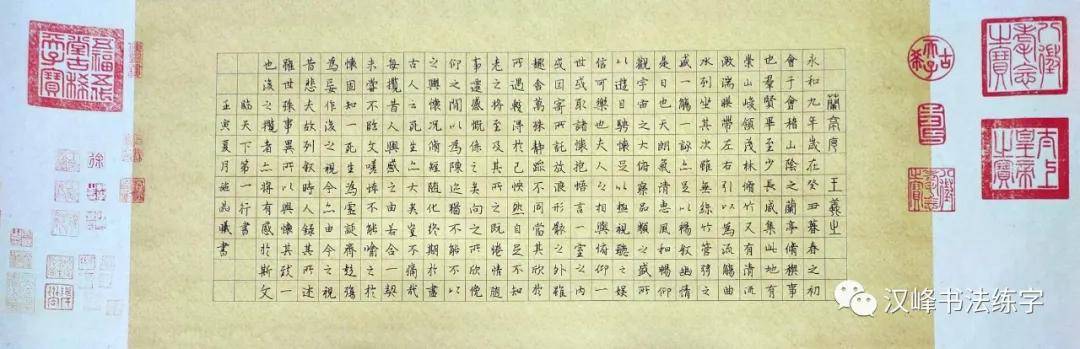 八徵耄念之寶
太上皇帝之寶
古希天子
蘭亭序 王羲之
永和九年歲在癸丑暮春之初
會于會稽山陰之蘭亭脩禊事
也羣賢畢至少長咸集此地有
崇山峻領茂林脩竹又有清流
激湍暎帶左右引以為流觴曲
水列坐其次雖無絲竹管弦之
盛一觴一詠亦足以暢敘幽情
是日也天朗氣清惠風和暢仰
觀宇宙之大俯察品類之盛所
以遊目騁懷足以極視聽之娛
信可樂也夫人之相與俯仰一
世或取諸懷抱悟言一室之內
或因寄所託放浪形骸之外雖
趣舍萬殊靜躁不同當其欣於
所遇暫得於己怏然自足不知
老之將至及其所之既惓情隨
事遷感慨係之矣向之所欣俛
仰之間以為陳迹猶不能不以
之興懷況脩短隨化終期於盡
古人云死生亦大矣豈不痛哉
每攬昔人興感之由若合一契
未嘗不臨文嗟悼不能喻之於
懷固知一死生為虛誕齊彭殤
為妄作後之視今亦由今之視
昔悲夫故列敘時人錄其所述
雖世殊事異所以興懷其致一
也後之攬者亦將有感於斯文
臨天下第一行書
壬寅夏月施品曦書
汉峰书法练字